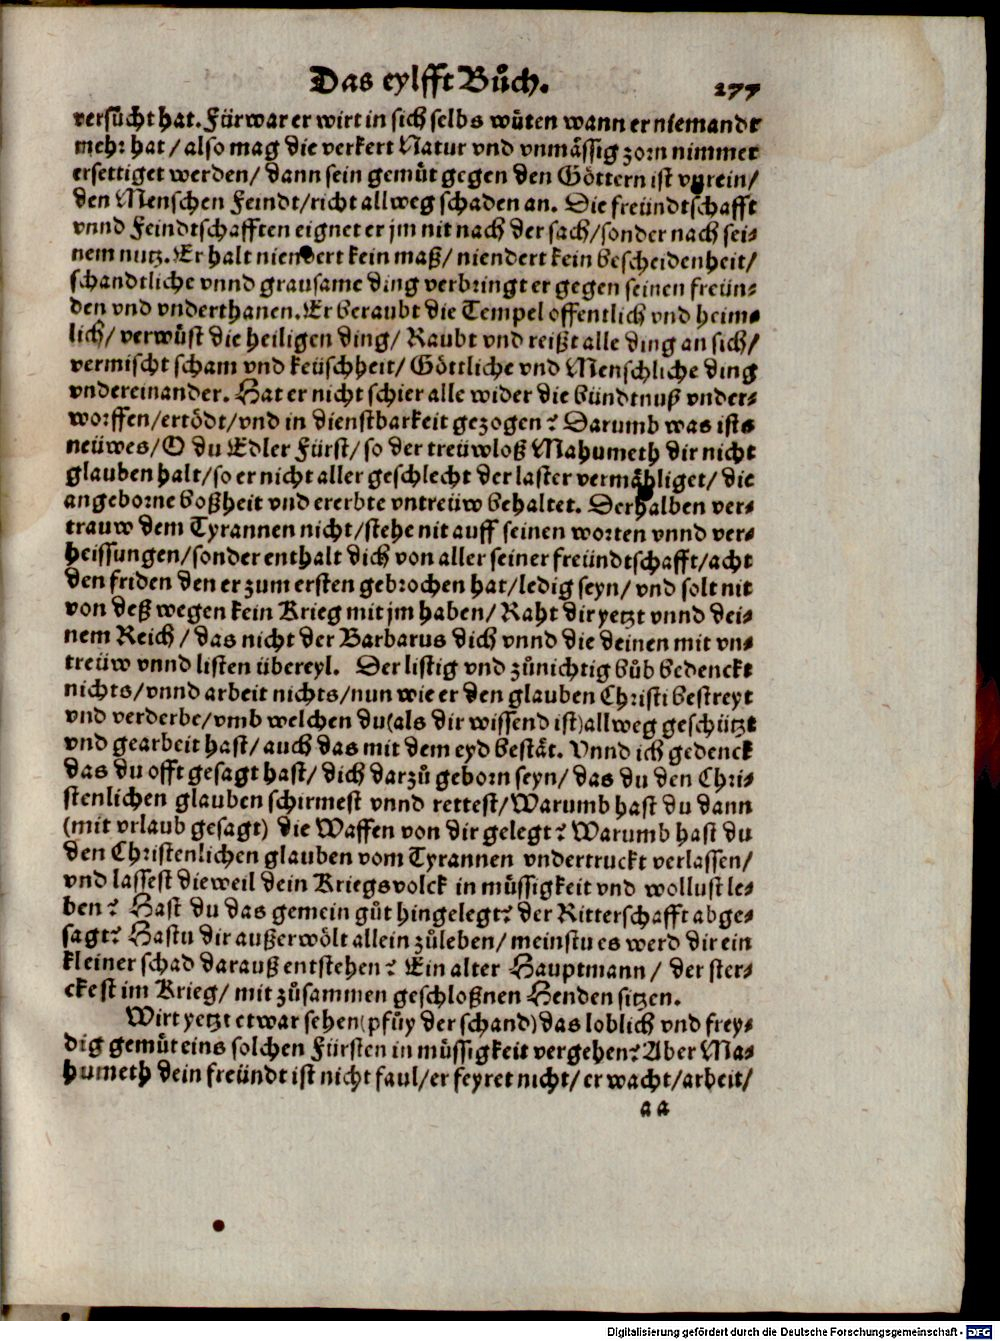 Das eylfft Bůch. 277
versůcht hat. Fürwar er wirt in sich selbs wüten wann er niemandt
mehr hat / also mag die verkert Natur vnd vnmässig zorn nimmer
ersettiget werden / dann sein gemüt gegen den Göttern ist vnrein /
den Menschen Feindt / richt allweg schaden an. Die freündtschafft
vnnd Feindtschafften eignet er jm nit nach der sach / sonder nach sei⸗
nem nutz. Er halt niendert kein maß / niendert kein bescheidenheit /
schandtliche vnnd grausame ding verbringt er gegen seinen freün⸗
den vnd vnderthanen. Er beraubt die Tempel offentlich vnd heim⸗
lich / verwüst die heiligen ding / Raubt vnd reißt alle ding an sich /
vermischt scham vnd keüschheit / Göttliche vnd Menschliche ding
vndereinander. Hat er nicht schier alle wider die bündtnuß vnder⸗
worffen / ertödt / vnd in dienstbarkeit gezogen? Darumb was ists
neüwes / O du Edler Fürst / so der treüwloß Mahumeth dir nicht
glauben halt / so er nicht aller geschlecht der laster vermähliget / die
angeborne boßheit vnd ererbte vntreüw behaltet. Derhalben ver⸗
trauw dem Tyrannen nicht / stehe nit auff seinen worten vnnd ver⸗
heissungen / sonder enthalt dich von aller seiner freündtschafft / acht
den friden den er zum ersten gebrochen hat / ledig seyn / vnd solt nit
von deß wegen kein Krieg mit jm haben / Raht dir yetzt vnnd dei⸗
nem Reich / das nicht der Barbarus dich vnnd die deinen mit vn⸗
treüw vnnd listen übereyl. Der listig vnd zůnichtig bůb bedenckt
nichts / vnnd arbeit nichts / nun wie er den glauben Christi bestreyt
vnd verderbe / vmb welchen du (als dir wissend ist) allweg geschützt
vnd gearbeit hast / auch das mit dem eyd bestät. Vnnd ich gedenck
das du offt gesagt hast / dich darzů geborn seyn / das du den Chri⸗
stenlichen glauben schirmest vnnd rettest / Warumb hast du dann
(mit vrlaub gesagt) die Waffen von dir gelegt? Warumb hast du
den Christenlichen glauben vom Tyrannen vndertruckt verlassen /
vnd lassest dieweil dein Kriegsvolck in müssigkeit vnd wollust le⸗
ben? Hast du das gemein gůt hingelegt? der Ritterschafft abge⸗
sagt? Hastu dir außerwölt allein zůleben / meinstu es werd dir ein
kleiner schad darauß entstehen? Ein alter Hauptmann / der ster⸗
ckest im Krieg / mit zůsammen geschloßnen Henden sitzen.
Wirt yetzt etwar sehen (pfüy der schand) das loblich vnd frey⸗
dig gemüt eins solchen Fürsten in müssigkeit vergehen? Aber Ma⸗
humeth dein freündt ist nicht faul / er feyret nicht / er wacht / arbeit /
aa
Digitalisierung gefördert durch die Deutsche Forschungsgemeinschaft - DFG